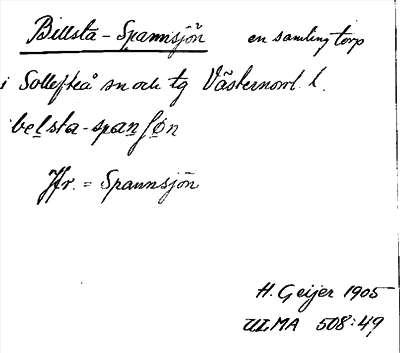 Billsta-Spannsjön en samling torp
i Sollefteå sn och tg Västernorrl. l.
belsta-spanʃøn
Jfr. = Spannsjön
H. Geijer 1905
ULMA 508:49